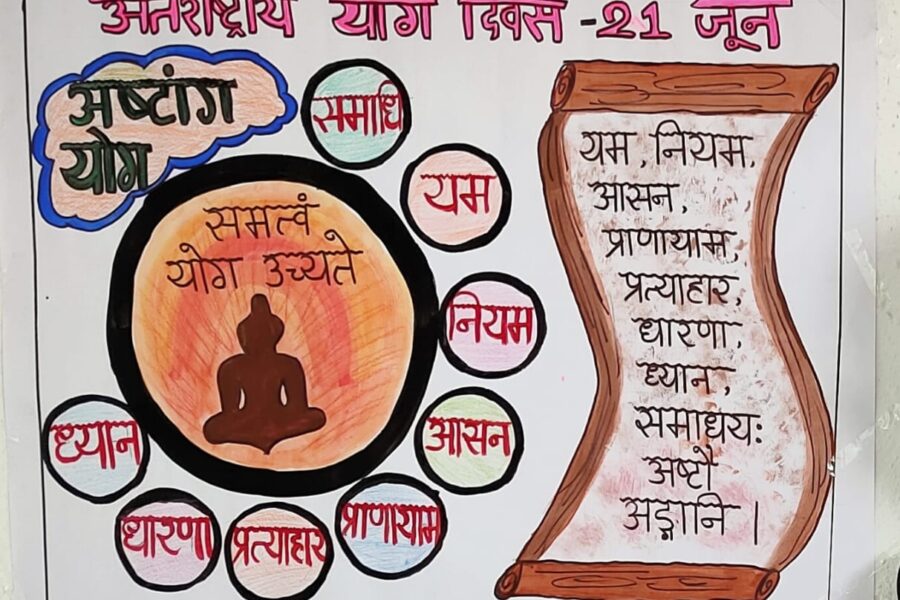 अंतर्राष्ट्रीय योग दिवस -21 जून
अष्टांग
योग
समाधि
यम
नियम
आसन
प्राणायाम
प्रत्याहार
धारणा
ध्यान
समत्वं
योग उच्यते
यम, नियम,
आसन,
प्राणायाम,
प्रत्याहार,
धारणा,
ध्यान,
समाधयः
अष्टौ
अङ्गानि।